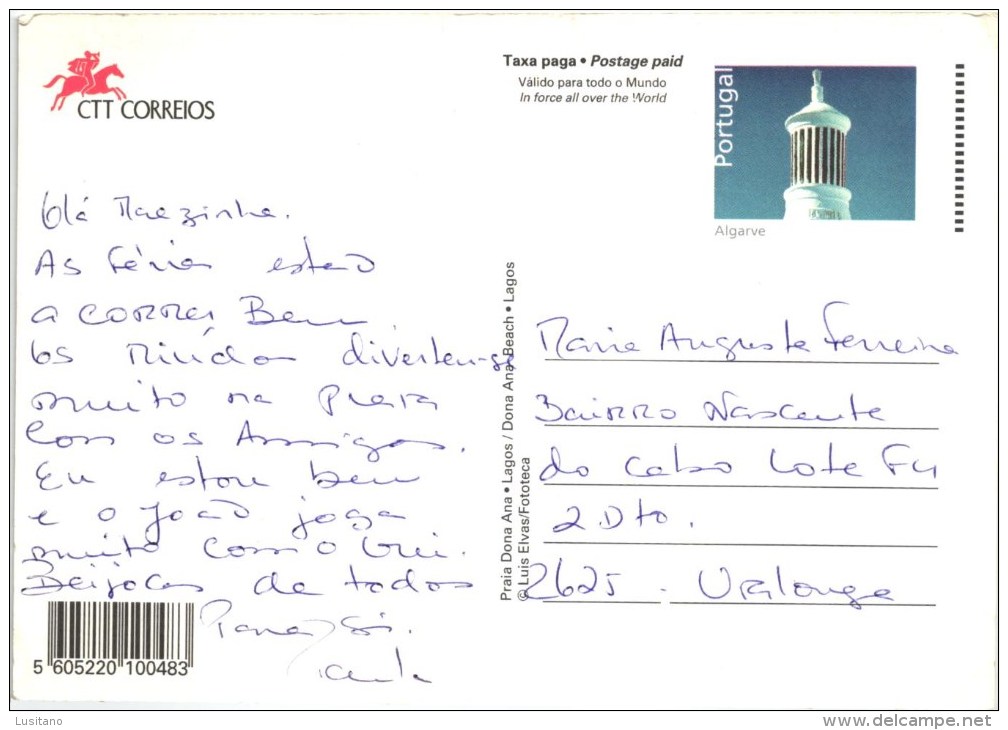 CTT CORREIOS
Taxa paga • Postage paid
Válido para todo o Mundo
In force all over the World
Portugal
Algarve
Olá Maezinha.
As férias estão
a correr Bem
Os Miúdos divertem-se
muito na Praia
Com os Amigos.
Eu estou bem
e o João joga
muito com o Gui.
Beijocas de todos
Para Si.
Paula
Praia Dona Ana • Lagos / Dona Ana Beach • Lagos
© Luis Elvas/Fototeca
Maria Augusta Ferreira
Bairro Nascente
do Cabo Lote F4
2 Dto.
2625 - Vialonga
5 605220 100483
Lusitano
www.delcampe.net